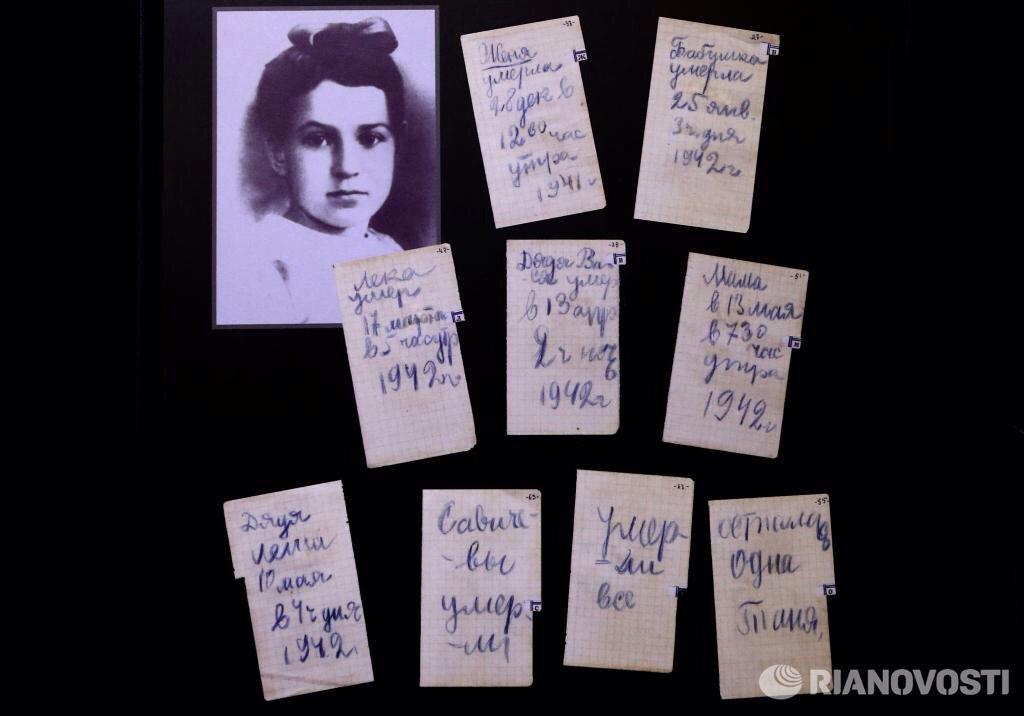 -37-
Женя
умерла
28 дек в
12 00 час
утра
1941 г
-27-
Бабушка
умерла
25 янв.
3 ч. дня
1942 г
-43-
Лека
умер
17 марта
в 5 час утр
1942 г
-29-
Дядя Ва-
ся умер
в 13 апр
2 ч ноч
1942 г
-51-
Мама
в 13 мая
в 7 30
час
утра
1942 г
Дядя
Леша
10 мая
в 4 ч дня
1942
-63-
Савиче-
-вы
умер
-ли
С
-67-
Умер
-ли
все
-55-
осталась
одна
Таня,
О
RIANOVOSTI